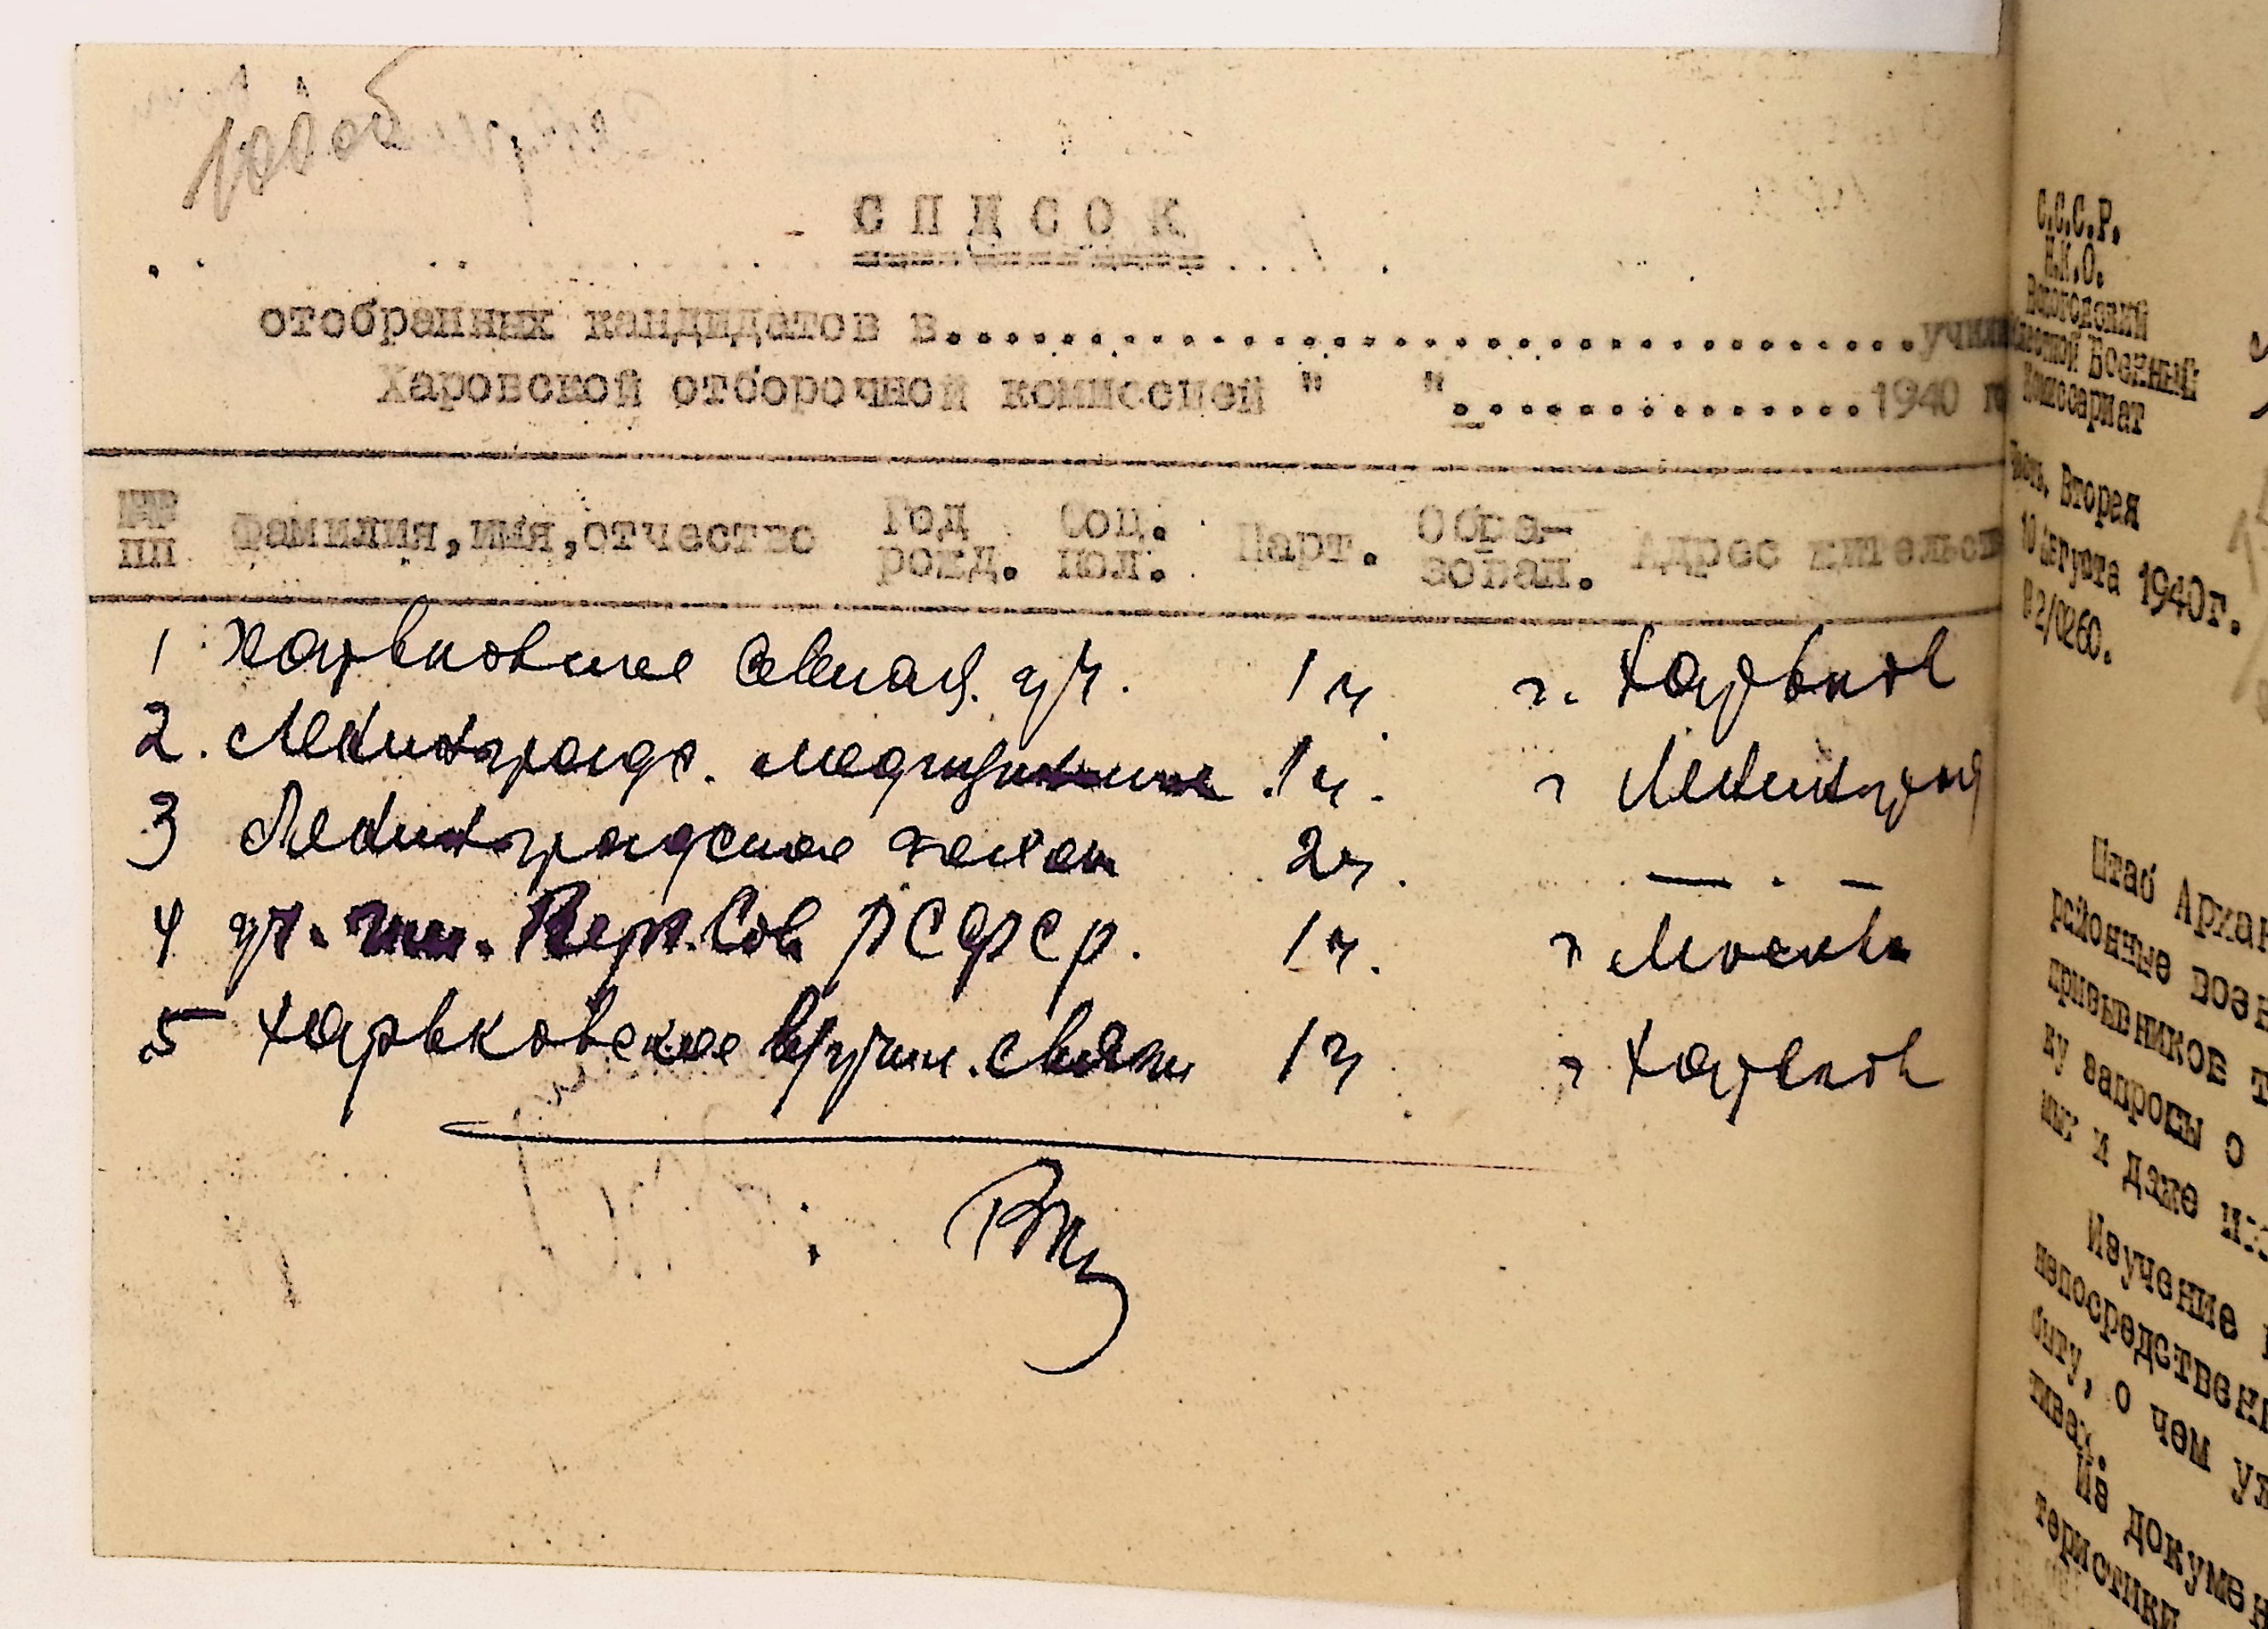 СПИСОК
отобранных кандидатов в.......................................учил
Харовской отборочной комиссией " "...............1940 г
№№ пп Фамилия,имя,отчество Год рожд. Соц. пол. Парт. Обра-зован. Адрес жительств
1 Харьковское авиац. уч. 1 ч г. Харьков
2. Ленинградс. медицинское 1ч. г Ленинград
3 Ленинградское техн 2ч. — . —
4 уч. им. Верх.Сов РСФСР. 1ч. г Москва
5 Харьковское в/учил. связи 1ч г Харьков
С.С.С.Р.
Н.К.О.
Вологодский
Областной Военный
Комиссариат
Часть Вторая
10 августа 1940г.
№ 2/0260.
Штаб Архан
районные воен
призывников т
ку запросы с
мит и даже н
Изучение
непосредственн
биту, о чем ук
тивах.
Из докумен
теристики